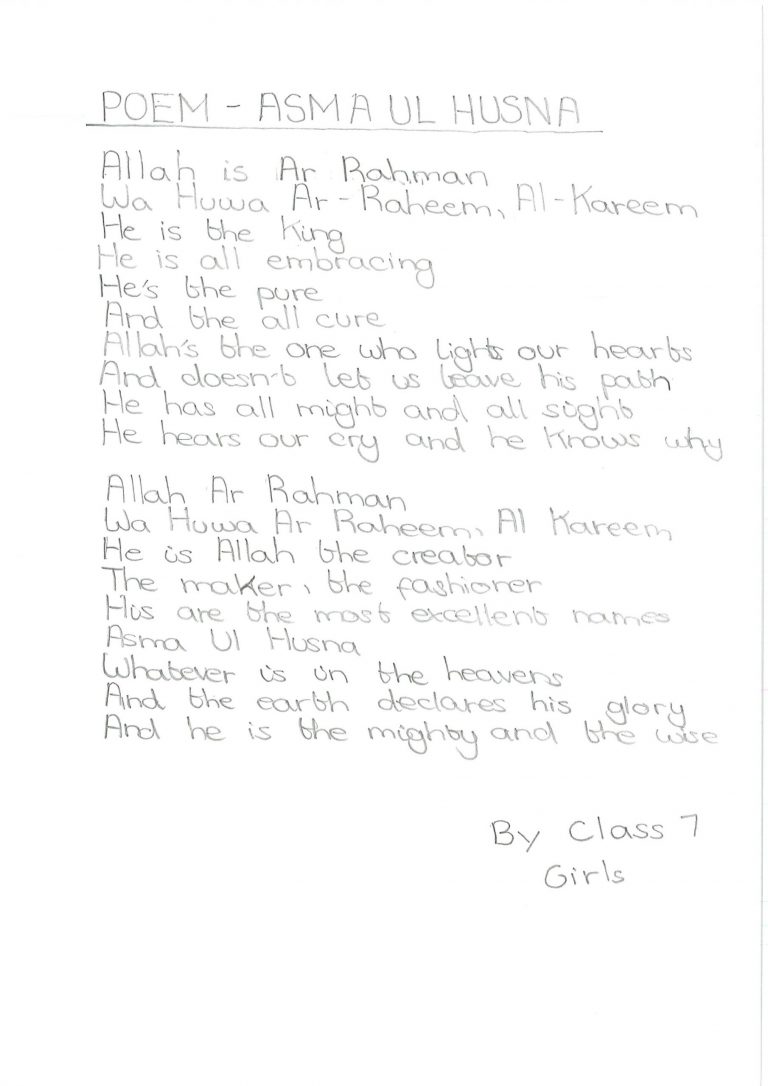 POEM - ASMA UL HUSNA
Allah is Ar Rahman
Wa Huwa Ar-Raheem, Al-Kareem
He is the King
He is all embracing
He's the pure
And the all cure
Allah's the one who lights our hearts
And doesn't let us leave his path
He has all might and all sight
He hears our cry and he knows why
Allah Ar Rahman
Wa Huwa Ar Raheem, Al Kareem
He is Allah the creator
The maker, the fashioner
His are the most excellent names
Asma Ul Husna
Whatever is in the heavens
And the earth declares his glory
And he is the mighty and the wise
By Class 7
Girls